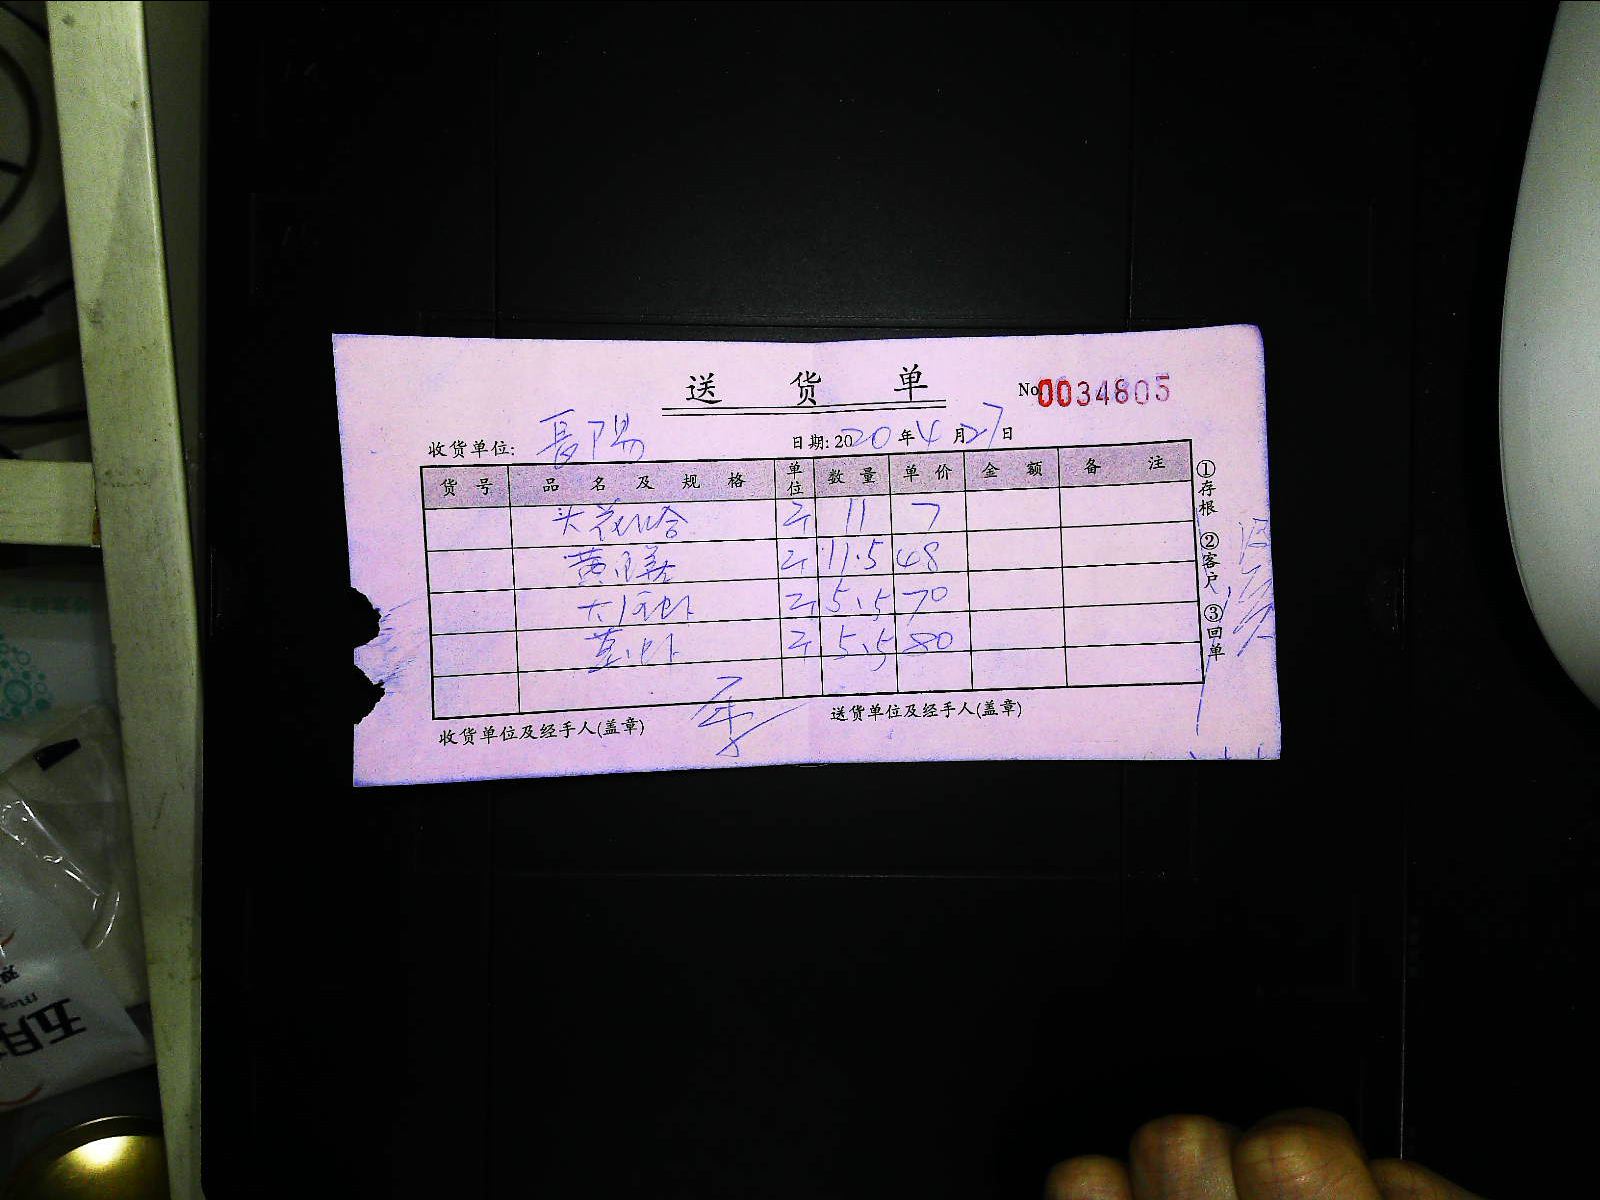 送货单
No 0034805
收货单位:
日期: 2020年4月27日
货号 品名及规格 单位 数量 单价 金额 备注
大花哈 斤 11 7
斤 11.5 48
斤 5.5 70
斤 5.5 80
收货单位及经手人(盖章) 送货单位及经手人(盖章)
①存根 ②客户 ③回单
五月